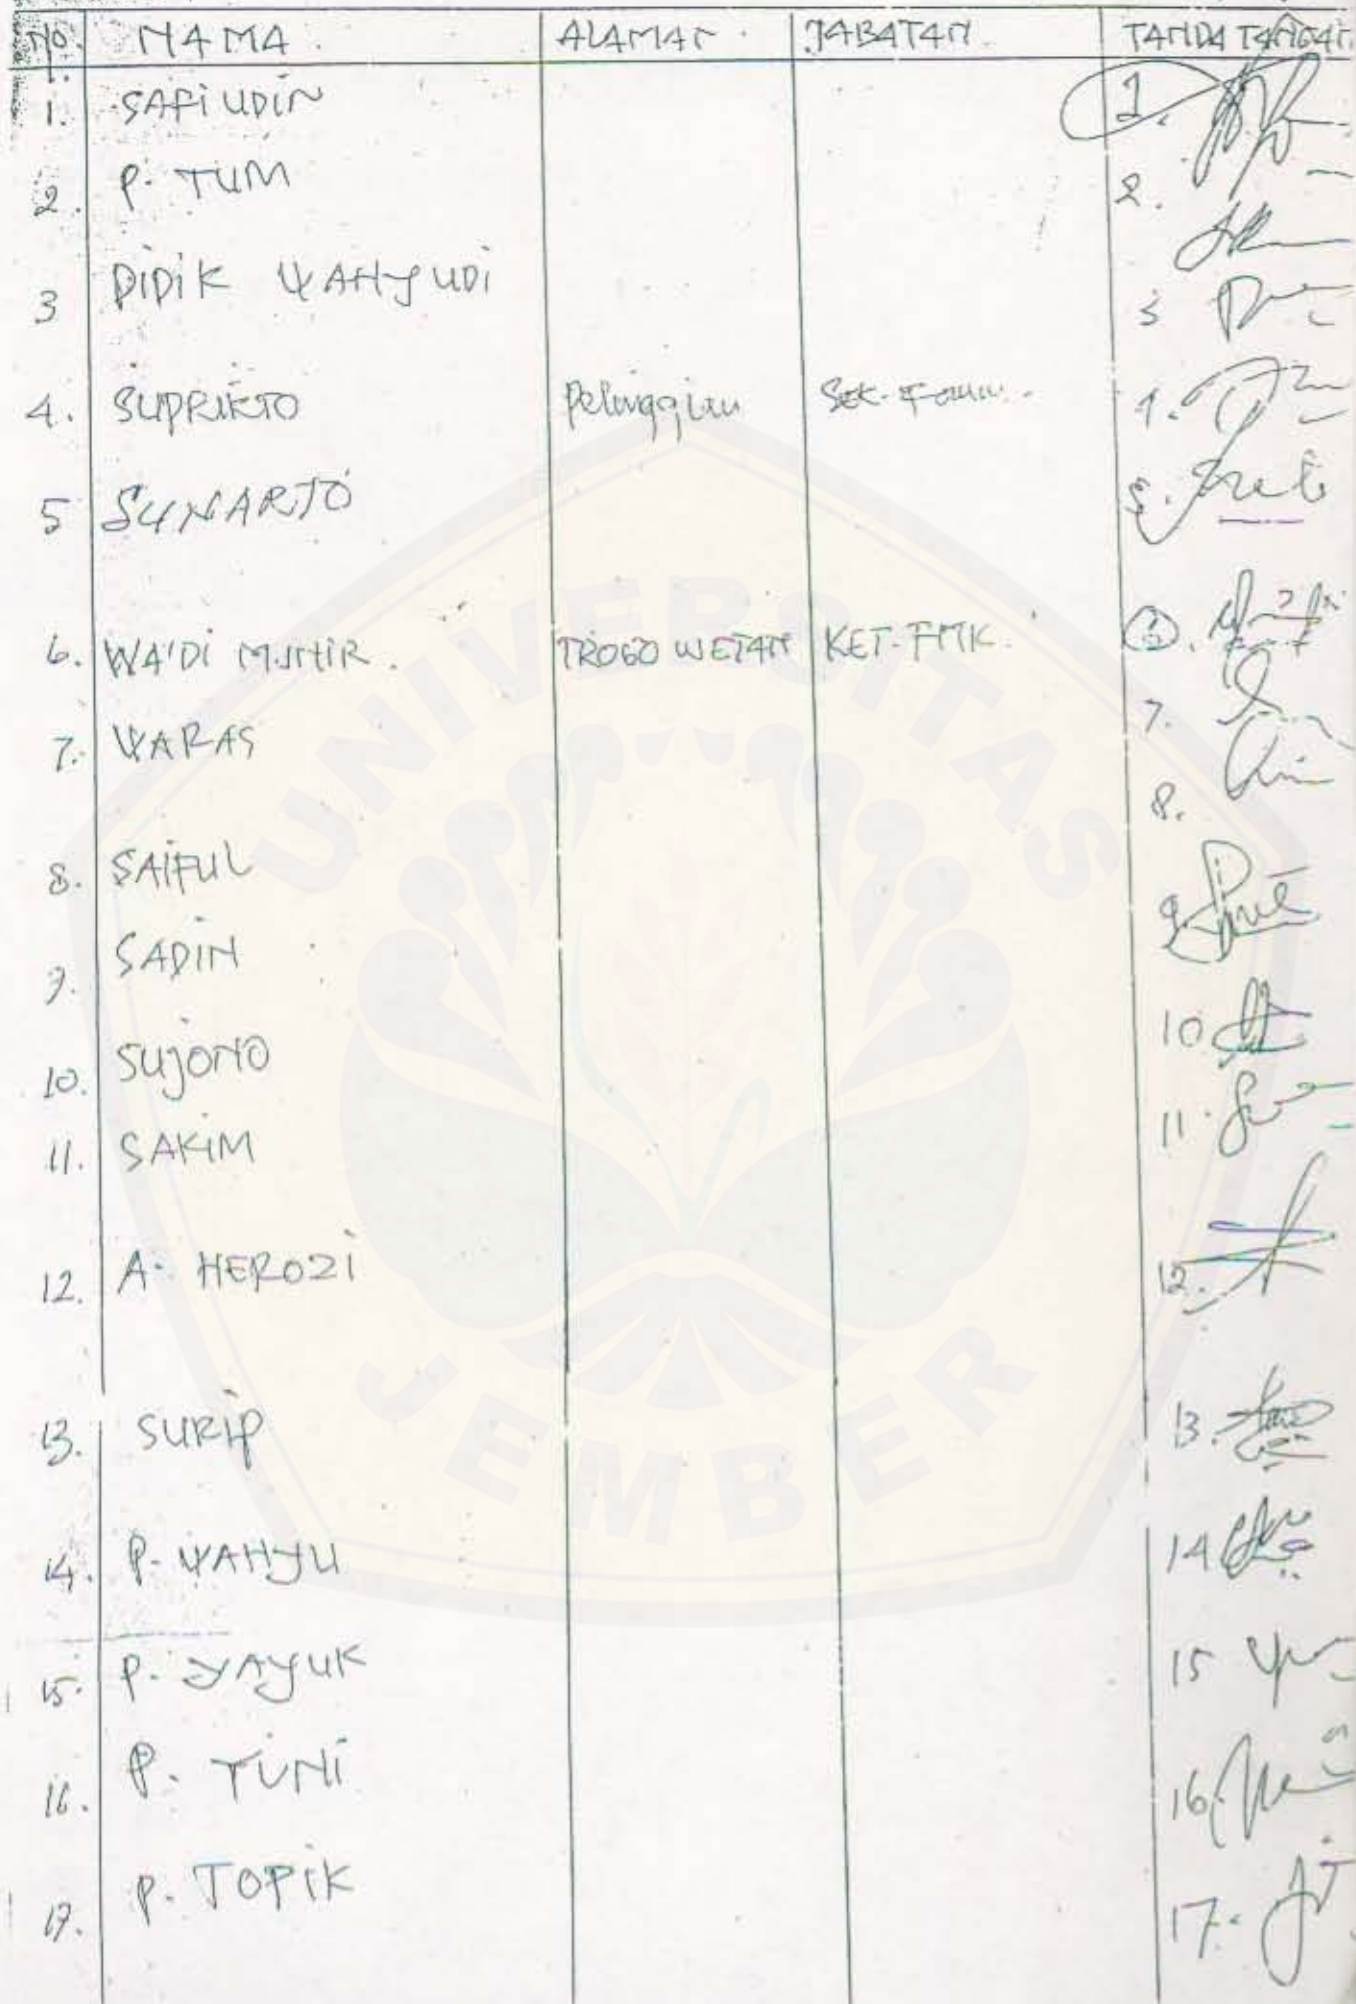 NO. NAMA. ALAMAT. JABATAN. TANDA TANGAN
1. SAFIUDIN 1.
2. P. TUM 2.
3 DIDIK WAHYUDI 3
4. SUPRIKTO Pelinggian Sek. Forum. 4.
5 SUNARTO 5.
6. WA'DI MUNIR. TROGO WETAN KET. FMK. 6.
7. WARAS 7.
8. SAIFUL 8.
9. SADIN 9.
10. SUJONO 10
11. SAKIM 11.
12. A. HEROZI 12.
13. SURIP 13.
14. P. WAHYU 14
15. P. YAYUK 15
16. P. TUNI 16
17. P. TOPIK 17.
UNIVERSITAS
JEMBER